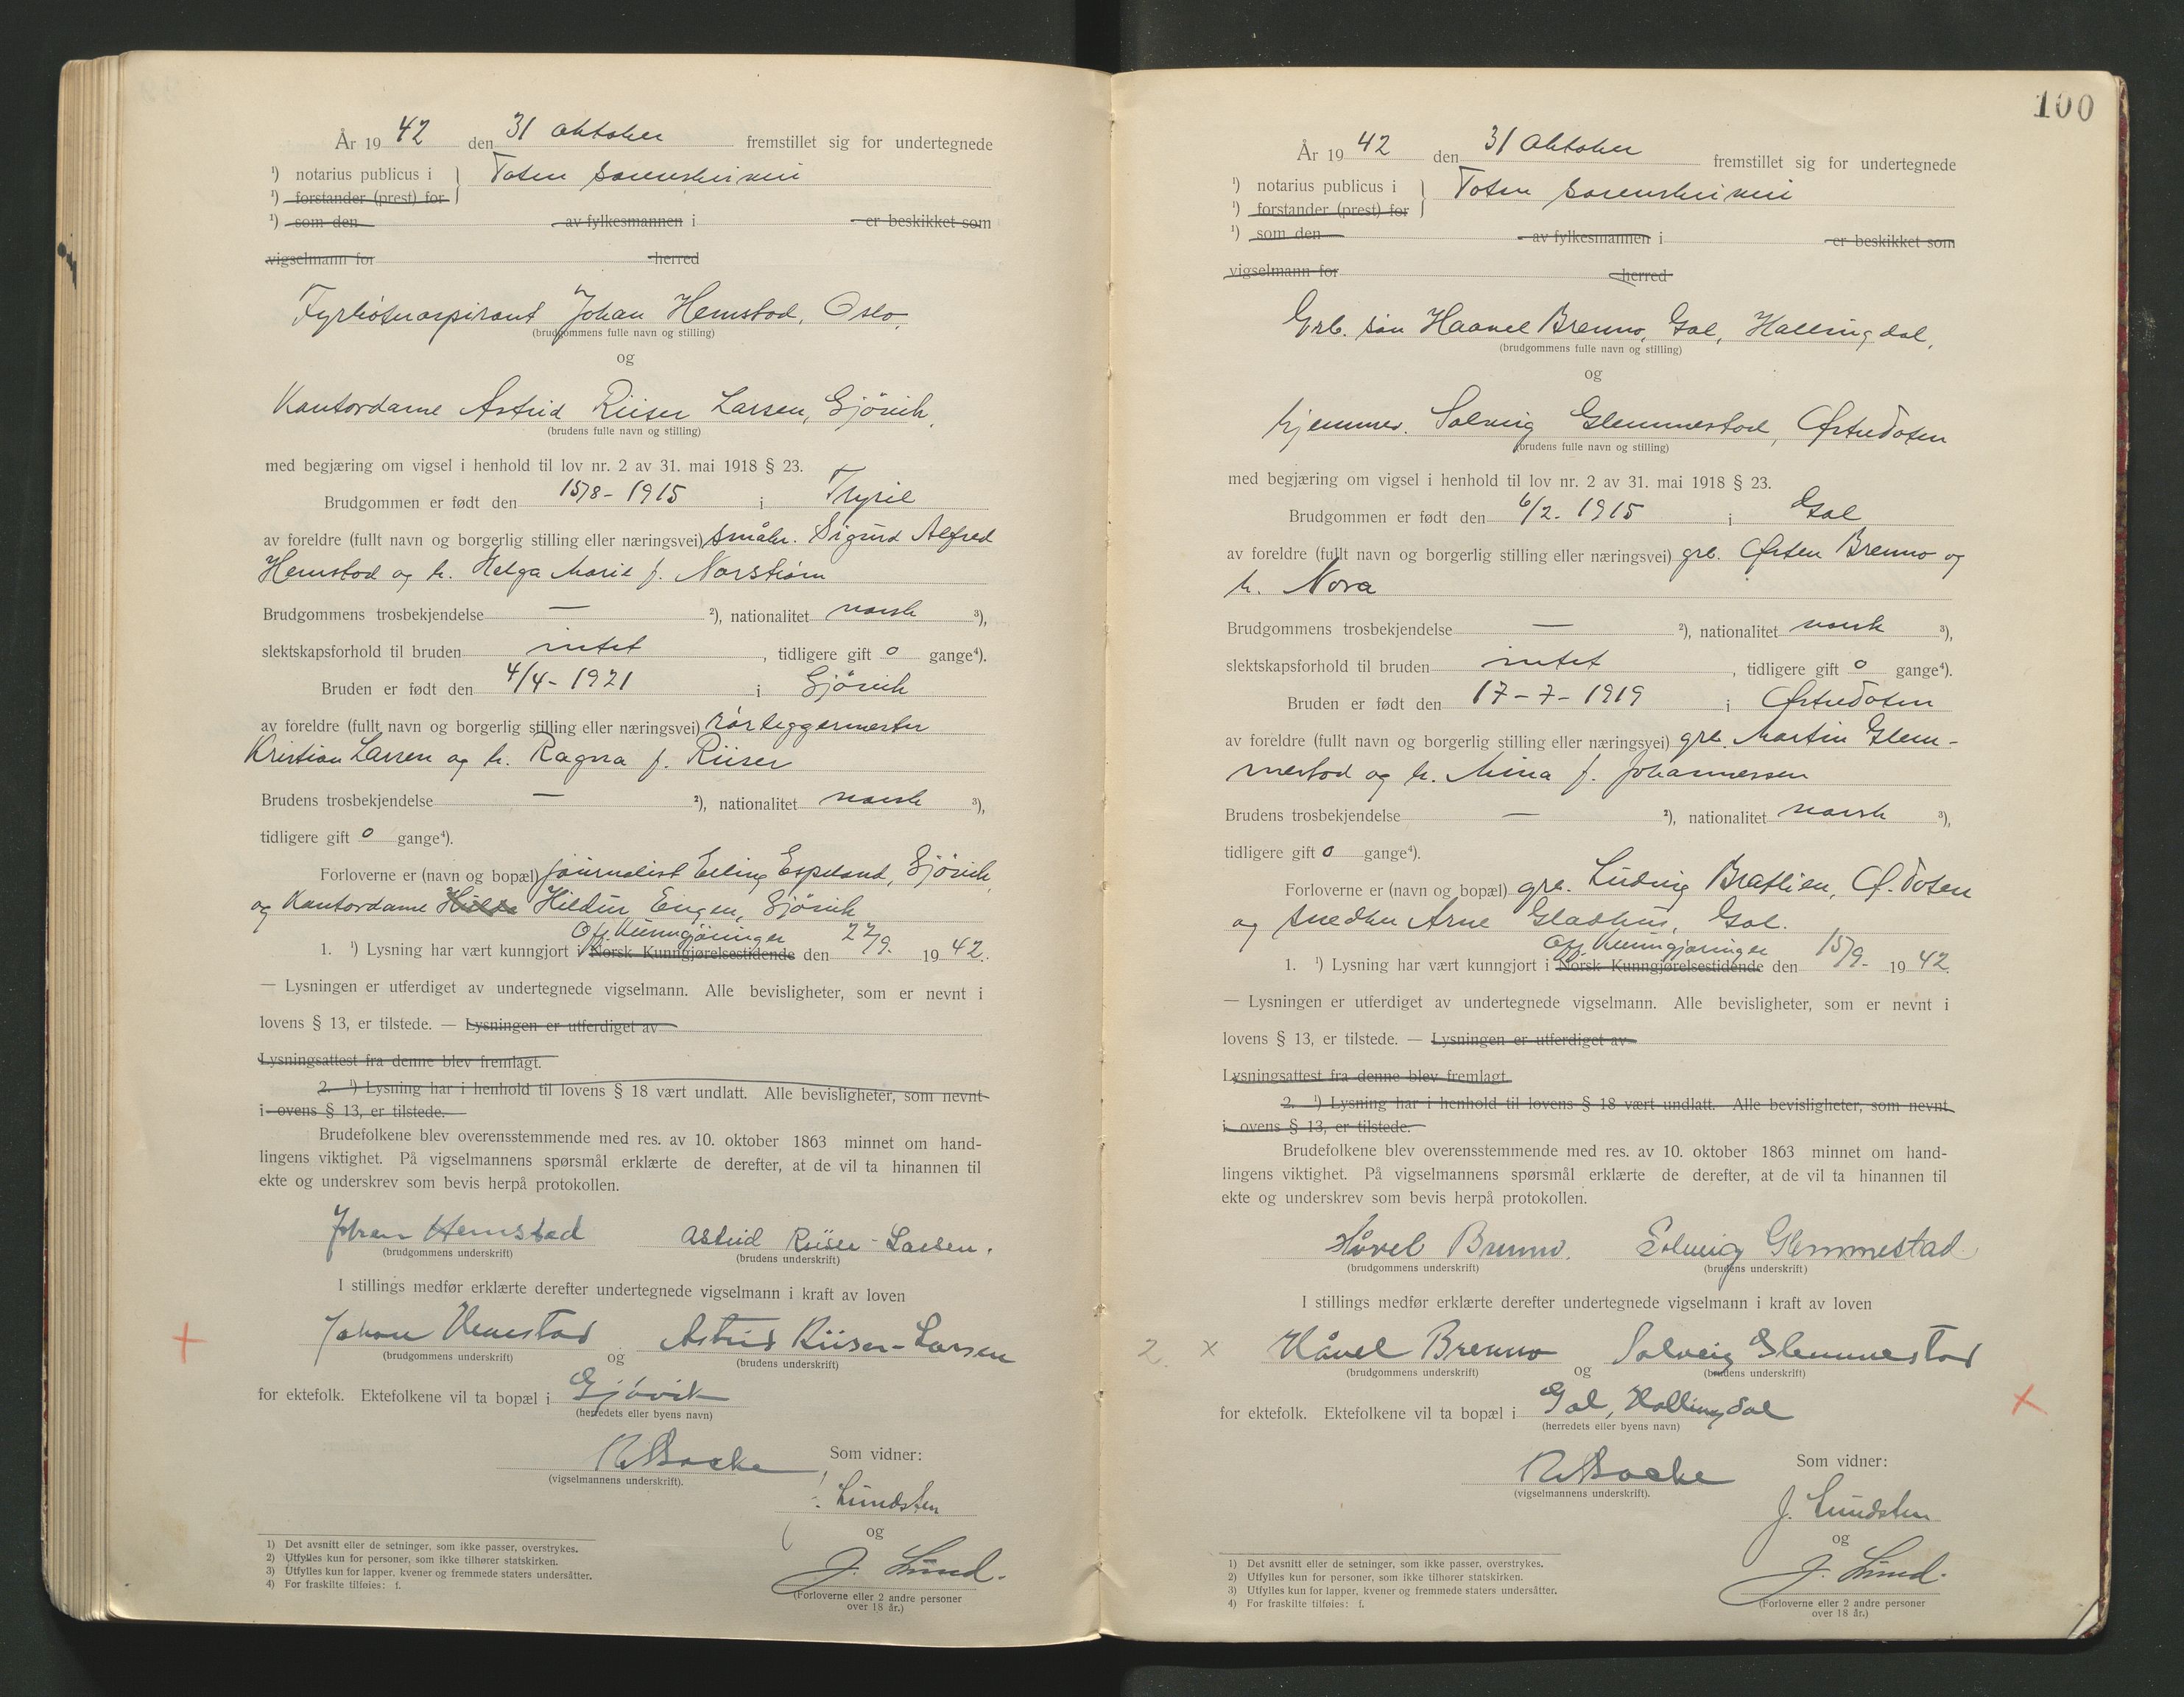 År 1942 den 31 oktober fremstillet sig for undertegnede
¹) notarius publicus i } Toten sorenskriveri
¹) forstander (prest) for
¹) som den av fylkesmannen i er beskikket som
vigselmann for herred
Fyrbøteraspirant Johan Hemstad, Oslo,
(brudgommens fulle navn og stilling)
og
Kontordame Astrid Riiser Larsen, Gjövik,
(brudens fulle navn og stilling)
med begjæring om vigsel i henhold til lov nr. 2 av 31. mai 1918 § 23.
Brudgommen er født den 15/8 - 1915 i Trysil
av foreldre (fullt navn og borgerlig stilling eller næringsvei) småbr. Sigurd Alfred
Hemstad og h. Helga Marie f. Norstrøm
Brudgommens trosbekjendelse — ²), nationalitet norsk ³),
slektskapsforhold til bruden intet, tidligere gift 0 gange⁴).
Bruden er født den 4/4 - 1921 i Gjövik
av foreldre (fullt navn og borgerlig stilling eller næringsvei) rörleggermester
Kristian Larsen og h. Ragna f. Riiser
Brudens trosbekjendelse — ²), nationalitet norsk ³),
tidligere gift 0 gange⁴).
Forloverne er (navn og bopæl) journalist Erling Espeland, Gjövik,
og Kontordame Hildur Engen, Gjövik
Off. Kunngjøringer
1. ¹) Lysning har vært kunngjort i Norsk Kunngjørelsestidende den 22/9. 1942.
— Lysningen er utferdiget av undertegnede vigselmann. Alle bevisligheter, som er nevnt i
lovens § 13, er tilstede. — Lysningen er utferdiget av
Lysningsattest fra denne blev fremlagt.
2. ¹) Lysning har i henhold til lovens § 18 vært undlatt. Alle bevisligheter, som nevnt
i ovens § 13, er tilstede.
Brudefolkene blev overensstemmende med res. av 10. oktober 1863 minnet om hand-
lingens viktighet. På vigselmannens spørsmål erklærte de derefter, at de vil ta hinannen til
ekte og underskrev som bevis herpå protokollen.
Johan Hemstad Astrid Riiser-Larsen.
(brudgommens underskrift) (brudens underskrift)
I stillings medfør erklærte derefter undertegnede vigselmann i kraft av loven
Johan Hemstad og Astrid Riiser-Larsen
(brudgommens underskrift) (brudens underskrift)
for ektefolk. Ektefolkene vil ta bopæl i Gjövik
(herredets eller byens navn)
(vigselmannens underskrift).
Som vidner:
Lundsten
og
J. Lund.
(Forloverne eller 2 andre personer
over 18 år.)
1) Det avsnitt eller de setninger, som ikke passer, overstrykes.
2) Utfylles kun for personer, som ikke tilhører statskirken.
3) Utfylles kun for lapper, kvener og fremmede staters undersåtter.
4) For fraskilte tilføies: f.
100
År 1942 den 31 oktober fremstillet sig for undertegnede
¹) notarius publicus i } Toten sorenskriveri
¹) forstander (prest) for
¹) som den av fylkesmannen i er beskikket som
vigselmann for herred
Grb. søn Haavel Brenno, Gol, Hallingdal,
(brudgommens fulle navn og stilling)
og
hjemmev. Solveig Glemmestad, ØstreToten
(brudens fulle navn og stilling)
med begjæring om vigsel i henhold til lov nr. 2 av 31. mai 1918 § 23.
Brudgommen er født den 6/2. 1915 i Gol
av foreldre (fullt navn og borgerlig stilling eller næringsvei) grb. Østen Brenno og
h. Nora
Brudgommens trosbekjendelse — ²), nationalitet norsk ³),
slektskapsforhold til bruden intet, tidligere gift 0 gange⁴).
Bruden er født den 17-7-1919 i ØstreToten
av foreldre (fullt navn og borgerlig stilling eller næringsvei) grb. Martin Glem-
mestad og h. Mina f. Johannessen
Brudens trosbekjendelse — ²), nationalitet norsk ³),
tidligere gift 0 gange⁴).
Forloverne er (navn og bopæl) grb. Ludvig Bratlien, Ø. Toten
og snedker Arne Gladhus, Gol.
Off. Kunngjøringer
1. ¹) Lysning har vært kunngjort i Norsk Kunngjørelsestidende den 15/9. 1942.
— Lysningen er utferdiget av undertegnede vigselmann. Alle bevisligheter, som er nevnt i
lovens § 13, er tilstede. — Lysningen er utferdiget av
Lysningsattest fra denne blev fremlagt.
2. ¹) Lysning har i henhold til lovens § 18 vært undlatt. Alle bevisligheter, som nevnt
i ovens § 13, er tilstede.
Brudefolkene blev overensstemmende med res. av 10. oktober 1863 minnet om hand-
lingens viktighet. På vigselmannens spørsmål erklærte de derefter, at de vil ta hinannen til
ekte og underskrev som bevis herpå protokollen.
Håvel Brenno. Solveig Glemmestad
(brudgommens underskrift) (brudens underskrift)
I stillings medfør erklærte derefter undertegnede vigselmann i kraft av loven
2. x Håvel Brenno og Solveig Glemmestad
(brudgommens underskrift) (brudens underskrift)
for ektefolk. Ektefolkene vil ta bopæl i Gol, Hallingdal
(herredets eller byens navn)
(vigselmannens underskrift).
Som vidner:
J. Lundsten
og
J. Lund.
(Forloverne eller 2 andre personer
over 18 år.)
1) Det avsnitt eller de setninger, som ikke passer, overstrykes.
2) Utfylles kun for personer, som ikke tilhører statskirken.
3) Utfylles kun for lapper, kvener og fremmede staters undersåtter.
4) For fraskilte tilføies: f.